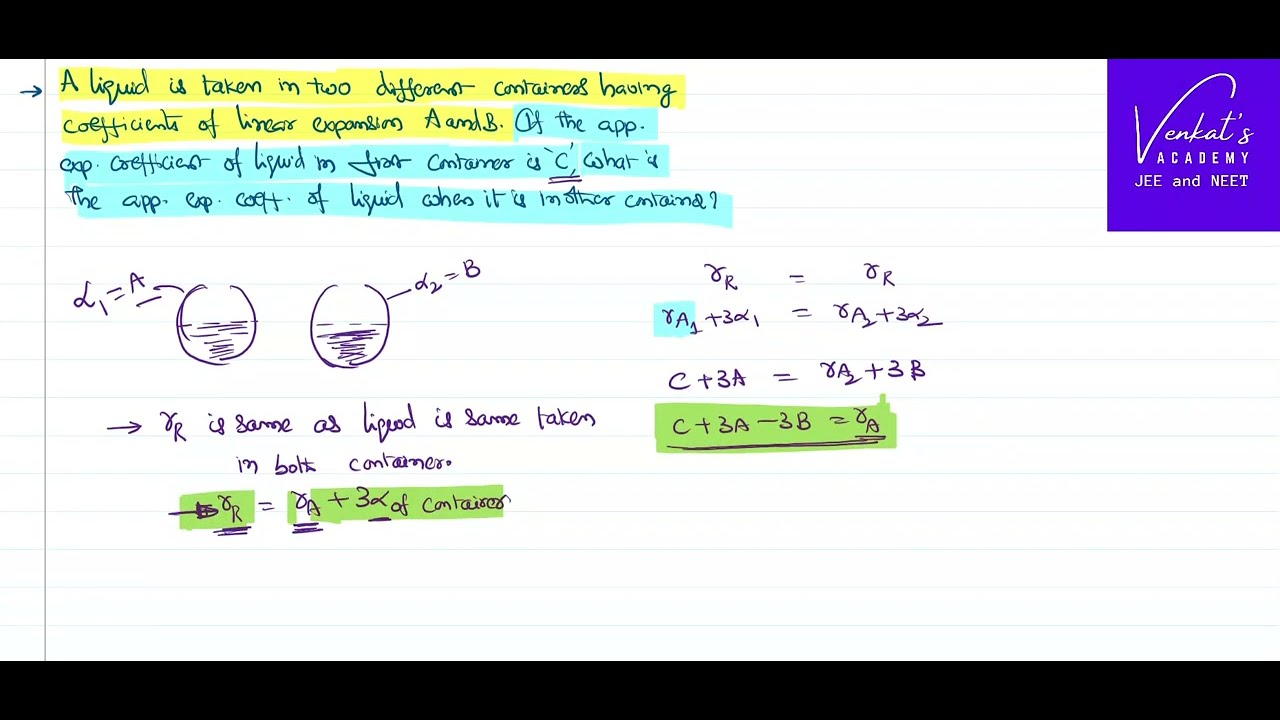 → A liquid is taken in two different containers having
coefficients of linear expansion A and B. If the app.
exp. coefficient of liquid in first container is 'C', what is
the app. exp. coeff. of liquid when it is in other container?
Venkat's
ACADEMY
JEE and NEET
α₁ = A
α₂ = B
→ γR is same as liquid is same taken
in both container.
→ γR = γA + 3α of container
γR = γR
γA₁ + 3α₁ = γA₂ + 3α₂
C + 3A = γA₂ + 3B
C + 3A − 3B = γA